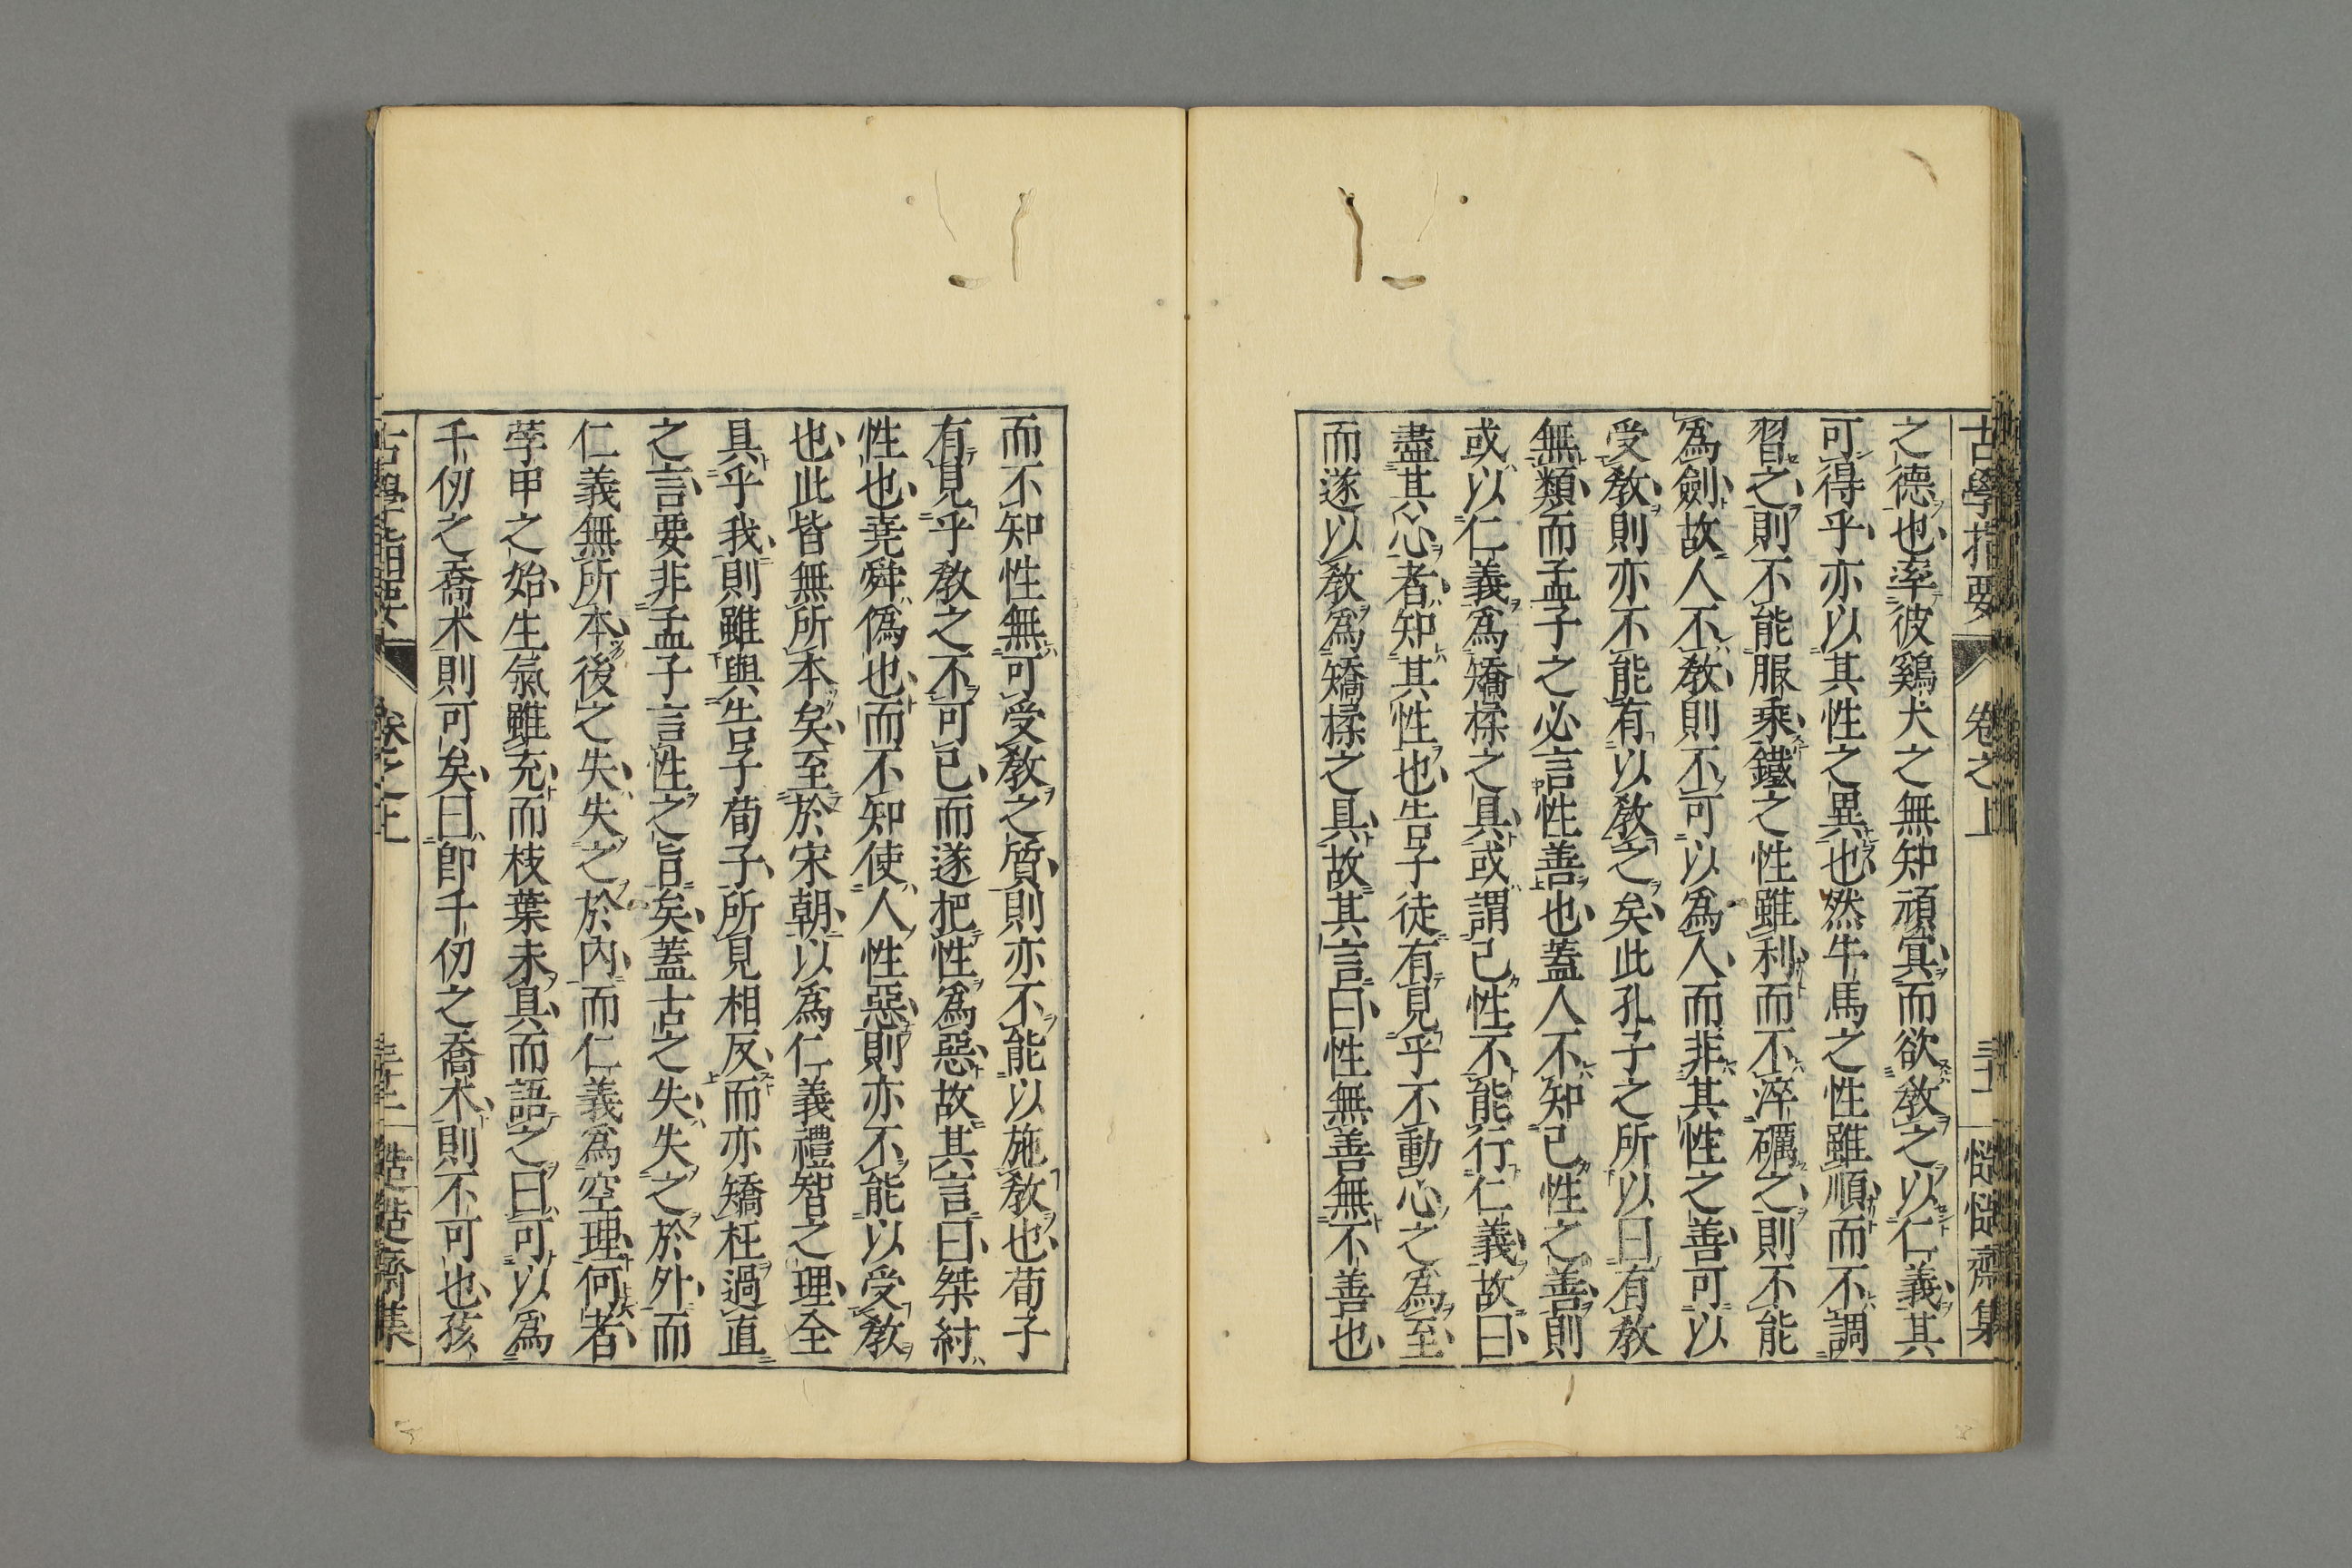 古學指要 卷之上 慥慥齋集
之德也率彼鷄犬之無知頑冥而欲教之以仁義其
可得乎亦以其性之異也然牛馬之性雖順而不調
習之則不能服乘鐵之性雖利而不淬礪之則不能
爲劍故人不教則不可以爲人而非其性之善可以
受教則亦不能有以教之矣此孔子之所以曰有教
無類而孟子之必言性善也蓋人不知己性之善則
或以仁義爲矯揉之具或謂己性不能行仁義故曰
盡其心者知其性也告子徒有見乎不動心之爲至
而遂以教爲矯揉之具故其言曰性無善無不善也
而不知性無可受教之質則亦不能以施教也荀子
有見乎教之不可已而遂把性爲惡故其言曰桀紂
性也堯舜僞也而不知使人性惡則亦不能以受教
也此皆無所本矣至於宋朝以爲仁義禮智之理全
具乎我則雖與告子荀子所見相反而亦矯枉過直
之言要非孟子言性之旨矣蓋古之失失之於外而
仁義無所本後之失失之於內而仁義爲空理何者
荸甲之始生氣雖充而枝葉未具而語之曰可以爲
千仞之喬木則可矣曰卽千仞之喬木則不可也孩
古學指要 卷之上 慥慥齋集